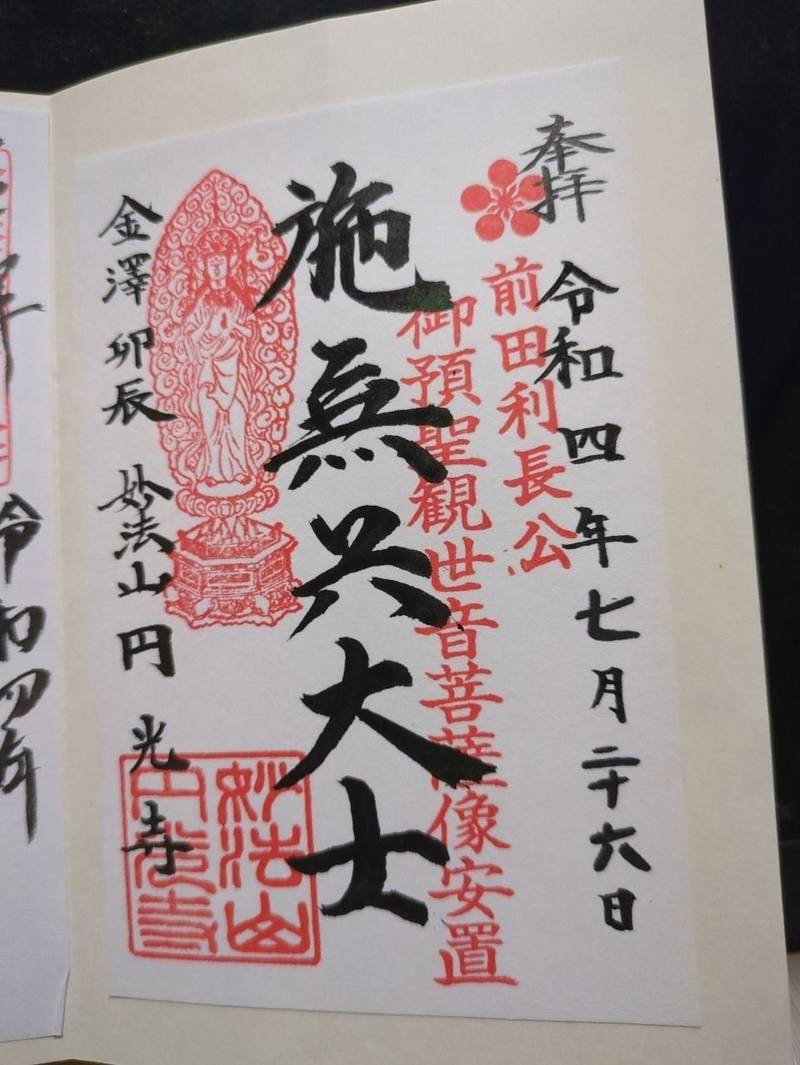 奉拝
令和四年七月二十六日
前田利長公
御預聖観世音菩薩像安置
施無畏大士
金澤卯辰 妙法山 円光寺
妙法山
円光寺
令和四年